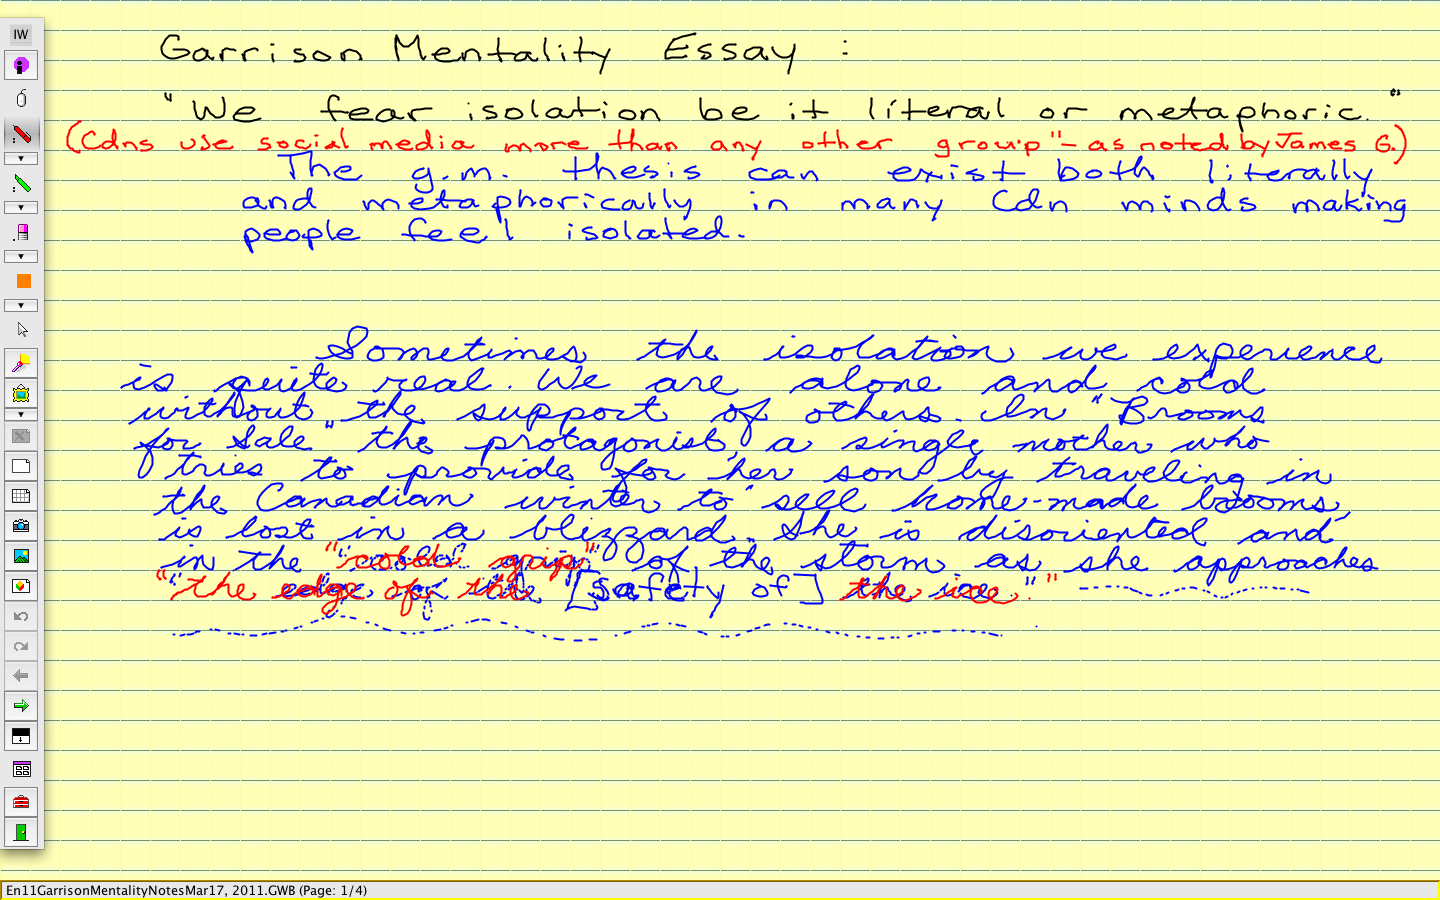 IW
Garrison Mentality Essay :
"We fear isolation be it literal or metaphoric."
(Cdns use social media more than any other group" - as noted by James G.)
The g.m. thesis can exist both literally
and metaphorically in many Cdn minds making
people feel isolated.
Sometimes the isolation we experience
is quite real. We are alone and cold
without the support of others. In "Brooms
for Sale" the protagonist, a single mother who
tries to provide for her son by traveling in
the Canadian winter to sell home-made brooms,
is lost in a blizzard. She is disoriented and
in the "cold grip" of the storm as she approaches
"the edge of the [safety of] the ice."
En11GarrisonMentalityNotesMar17, 2011.GWB (Page: 1/4)